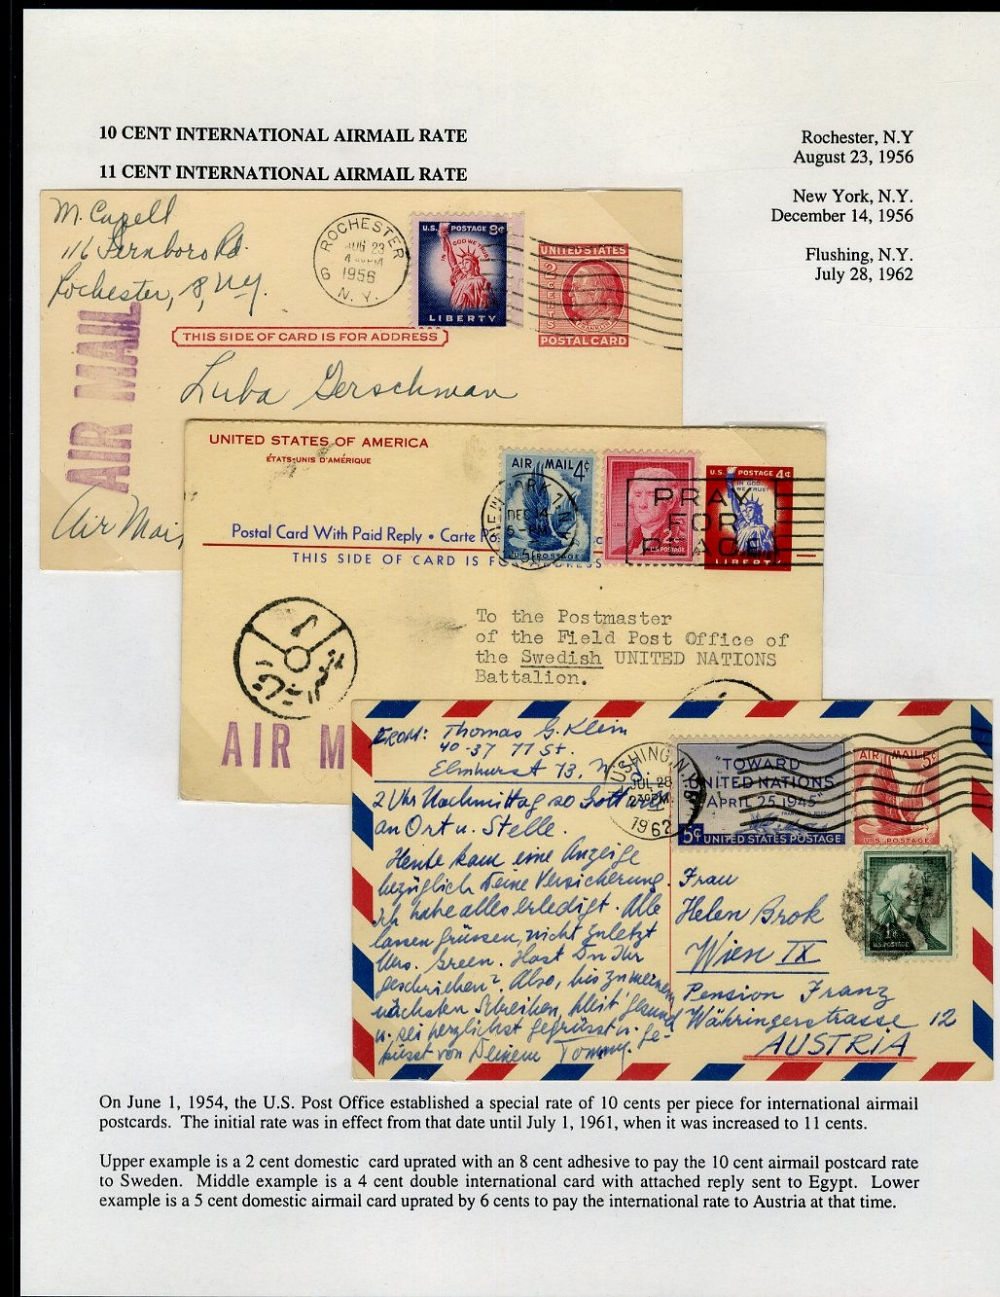 10 CENT INTERNATIONAL AIRMAIL RATE
11 CENT INTERNATIONAL AIRMAIL RATE
Rochester, N.Y
August 23, 1956
New York, N.Y.
December 14, 1956
Flushing, N.Y.
July 28, 1962
M. Capell
116 Fernboro Rd.
Rochester, 8, N.Y.
ROCHESTER
AUG 23
1956
6 N. Y.
U.S. POSTAGE 8¢
IN GOD WE TRUST
LIBERTY
UNITED STATES
2 CENTS
FRANKLIN
POSTAL CARD
THIS SIDE OF CARD IS FOR ADDRESS
AIR MAIL
Luba Gerschman
Air Mail
UNITED STATES OF AMERICA
ÉTATS-UNIS D'AMÉRIQUE
Postal Card With Paid Reply • Carte Po
THIS SIDE OF CARD IS FOR ADDRESS
AIR MAIL 4¢
U.S. POSTAGE
NEW YORK
DEC 14
56
2¢
U.S. POSTAGE
PRAY
FOR
PEACE
U.S. POSTAGE 4¢
IN GOD WE TRUST
LIBERTY
To the Postmaster
of the Field Post Office of
the Swedish UNITED NATIONS
Battalion.
AIR M
FROM: Thomas G. Klein
40-37 77 St.
Elmhurst 73, N.Y.
2 Uhr Nachmittag so Gott will
an Ort u. Stelle.
Heute kam eine Anzeige
bezüglich Deine Versicherung
Ich habe alles erledigt. Alle
lassen grüssen, nicht zuletzt
Mrs. Green. Hast Du Ihr
geschrieben? Also, bis zu meinem
nächsten Schreiben, bleib gesund
u. sei herzlichst gegrüsst u. ge-
küsst von Deinem Tommy.
USHING, N.Y.
JUL 28
PM
1962
"TOWARD
UNITED NATIONS
APRIL 25, 1945"
5¢ UNITED STATES POSTAGE
AIR MAIL 5¢
U.S. POSTAGE
1¢
U.S. POSTAGE
Frau
Helen Brok
Wien IX
Pension Franz
Währingerstrasse 12
AUSTRIA
On June 1, 1954, the U.S. Post Office established a special rate of 10 cents per piece for international airmail
postcards. The initial rate was in effect from that date until July 1, 1961, when it was increased to 11 cents.
Upper example is a 2 cent domestic card uprated with an 8 cent adhesive to pay the 10 cent airmail postcard rate
to Sweden. Middle example is a 4 cent double international card with attached reply sent to Egypt. Lower
example is a 5 cent domestic airmail card uprated by 6 cents to pay the international rate to Austria at that time.